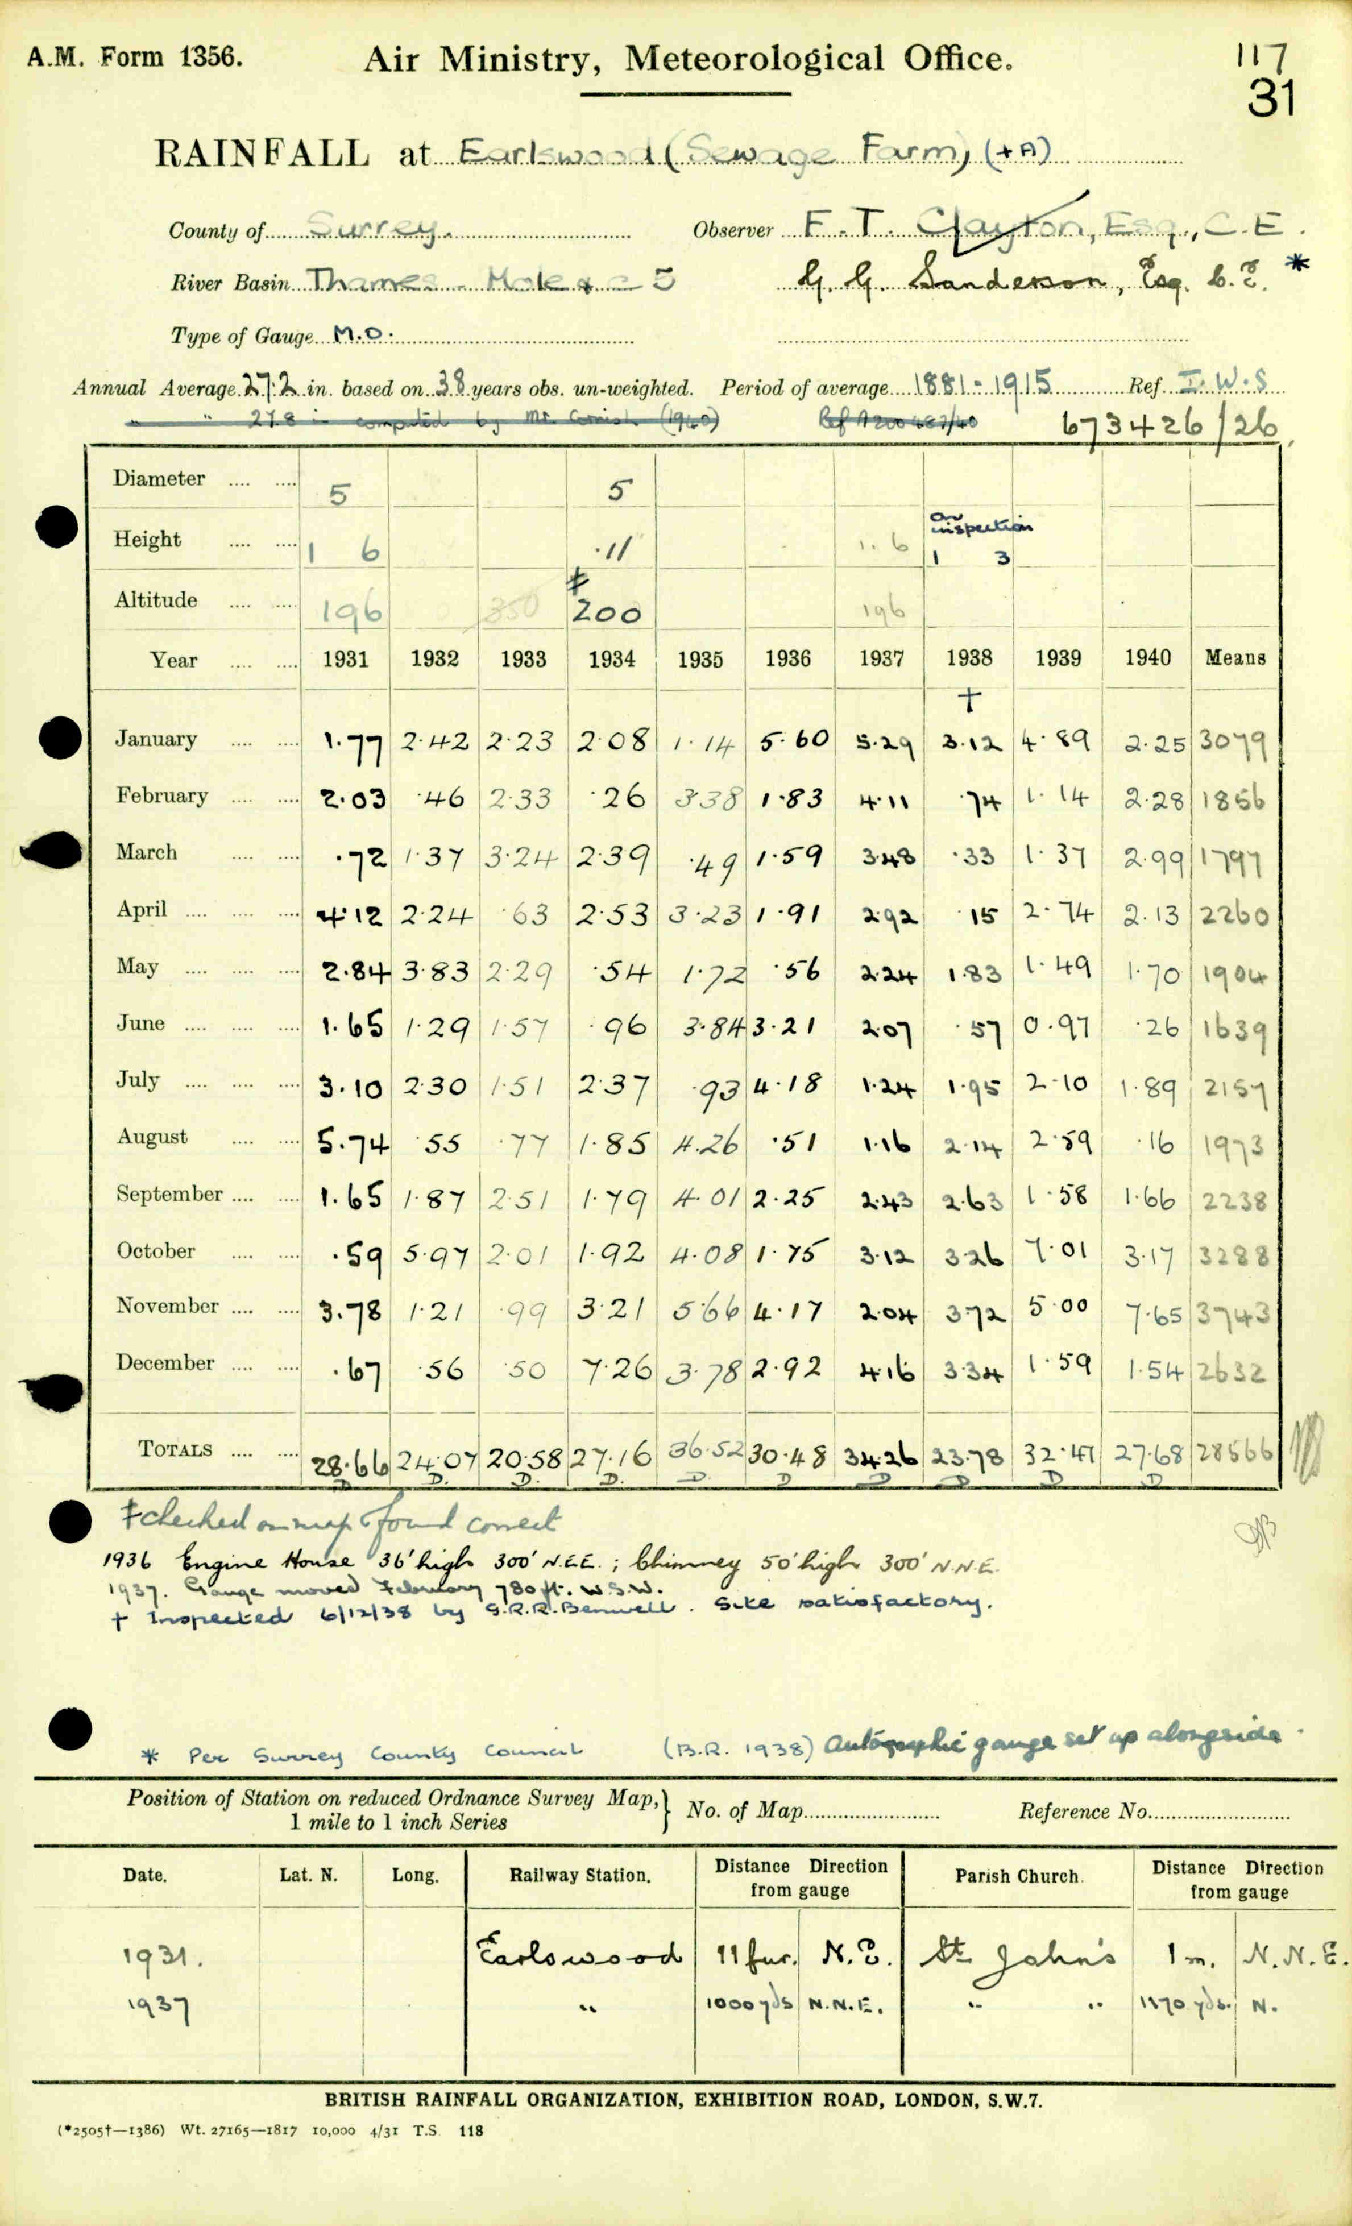 A.M. Form 1356.
Air Ministry, Meteorological Office.
117
31
RAINFALL at Earlswood (Sewage Farm) (+A)
County of Surrey.
Observer F. T. Clayton, Esq., C.E.
River Basin Thames - Mole & c 5
G. G. Sanderson, Esq. C.E. *
Type of Gauge M.O.
Annual Average 27.2 in. based on 38 years obs. un-weighted. Period of average 1881-1915 Ref. I.W.S
" " 27.8 in computed by Mr. Cornish (1940)
673426/26
Diameter 5 5
Height 1 6 .11 1. 6 On inspection 1 3
Altitude 196 350 ‡ 200 196
Year 1931 1932 1933 1934 1935 1936 1937 1938 1939 1940 Means
†
January 1.77 2.42 2.23 2.08 1.14 5.60 5.29 3.12 4.89 2.25 3079
February 2.03 .46 2.33 .26 3.38 1.83 4.11 .74 1.14 2.28 1856
March .72 1.37 3.24 2.39 .49 1.59 3.48 .33 1.37 2.99 1797
April 4.12 2.24 .63 2.53 3.23 1.91 2.92 .15 2.74 2.13 2260
May 2.84 3.83 2.29 .54 1.72 .56 2.24 1.83 1.49 1.70 1904
June 1.65 1.29 1.57 .96 3.84 3.21 2.07 .57 0.97 .26 1639
July 3.10 2.30 1.51 2.37 .93 4.18 1.24 1.95 2.10 1.89 2157
August 5.74 .55 .77 1.85 4.26 .51 1.16 2.14 2.59 .16 1973
September 1.65 1.87 2.51 1.79 4.01 2.25 2.43 2.63 1.58 1.66 2238
October .59 5.97 2.01 1.92 4.08 1.75 3.12 3.26 7.01 3.17 3288
November 3.78 1.21 .99 3.21 5.66 4.17 2.04 3.72 5.00 7.65 3743
December .67 .56 .50 7.26 3.78 2.92 4.16 3.34 1.59 1.54 2632
TOTALS 28.66 24.07 20.58 27.16 36.52 30.48 34.26 23.78 32.47 27.68 28566
D D. D. D. D. D D D D D
‡ checked on map & found correct
1936 Engine House 36' high 300' N.E.E. ; Chimney 50' high 300' N.N.E.
1937. Gauge moved February 780 ft. W.S.W.
† Inspected 6/12/38 by S.R.R. Benwell. Site satisfactory.
* Per Surrey County Council (B.R. 1938) Autographic gauge set up alongside.
Position of Station on reduced Ordnance Survey Map, 1 mile to 1 inch Series
No. of Map
Reference No.
Date. Lat. N. Long. Railway Station. Distance Direction from gauge Parish Church. Distance Direction from gauge
1931. Earlswood 11 fur. N.E. St John's 1 m. N.N.E.
1937 " 1000 yds N.N.E. " " 1170 yds. N.
BRITISH RAINFALL ORGANIZATION, EXHIBITION ROAD, LONDON, S.W.7.
(*2505†—1386) Wt. 27165—1817 10,000 4/31 T.S. 118